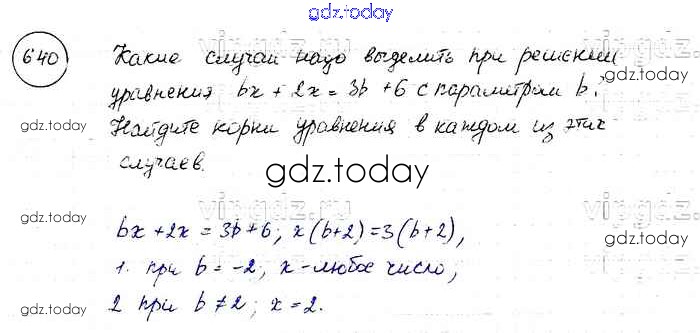 gdz.today
640 Какие случаи надо выделить при решении
gdz.today
уравнения bx + 2x = 3b + 6 с параметром b.
gdz.today
Найдите корни уравнения в каждом из этих
случаев.
gdz.today
gdz.today
gdz.today
bx + 2x = 3b + 6; x(b+2) = 3(b+2),
1. при b = -2, x - любое число,
gdz.today
gdz.today
2 при b ≠ 2; x = 2.